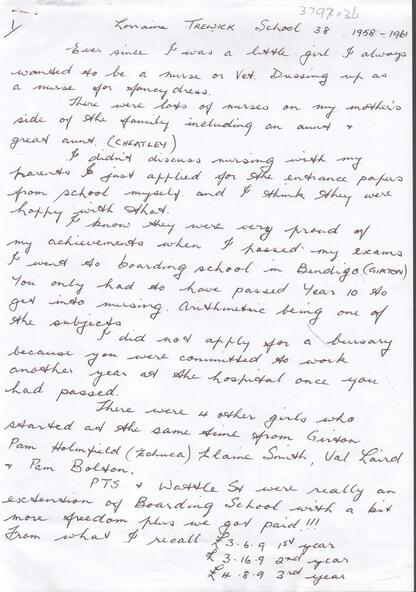 3797.03b
1 Lorraine TREWICK School 38 1958-1961
Ever since I was a little girl I always
wanted to be a nurse or Vet. Dressing up as
a nurse for fancy dress.
There were lots of nurses on my mother's
side of the family including an aunt &
great aunt. (CHEATLEY)
I didn't discuss nursing with my
parents I just applied for the entrance papers
from school myself, and I think they were
happy with that.
I know they were very proud of
my achievements when I passed my exams
I went to boarding school in Bendigo (GIRTON)
You only had to have passed Year 10 to
get into nursing. Arithmetic being one of
the subjects
I did not apply for a bursary
because you were committed to work
another year at the hospital once you
had passed.
There were 4 other girls who
started at the same time from Girton
Pam Holmfield (Echuca) Elaine Smith, Val Laird
& Pam Bolton.
PTS & Wattle St were really an
extension of Boarding School with a bit
more freedom plus we got paid!!!
From what I recall £3.6.9 1st year
£3.16.9 2nd year
£4.8.9 3rd year